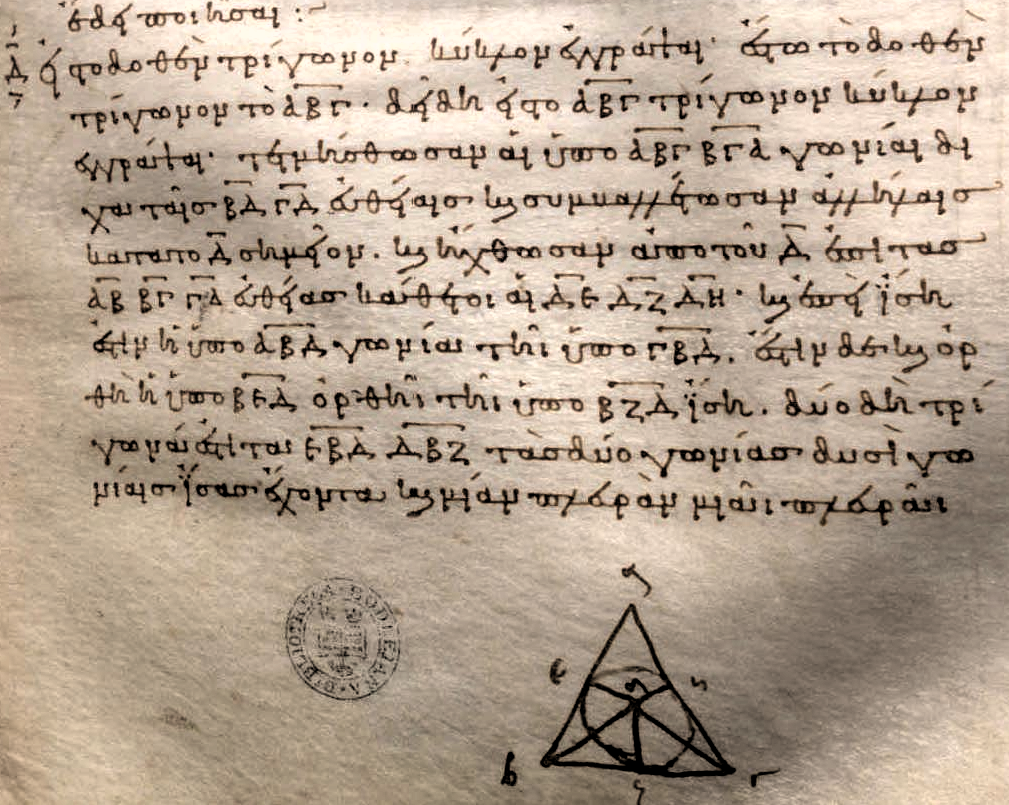 ἔδει ποιῆσαι :~
Δ Εἰς τὸ δοθὲν τρίγωνον κύκλον ἐγγράψαι· ἔστω τὸ δοθὲν
τρίγωνον τὸ ΑΒΓ· δεῖ δὴ εἰς τὸ ΑΒΓ τρίγωνον κύκλον
ἐγγράψαι· τετμήσθωσαν αἱ ὑπὸ ΑΒΓ ΒΓΑ γωνίαι δί
χα ταῖς ΒΔ ΓΔ εὐθείαις καὶ συμβαλλέτωσαν ἀλλήλαις
κατὰ τὸ Δ σημεῖον. καὶ ἤχθωσαν ἀπὸ τοῦ Δ ἐπὶ τὰς
ΑΒ ΒΓ ΓΑ εὐθείας κάθετοι αἱ ΔΕ ΔΖ ΔΗ· καὶ ἐπεὶ ἴση
ἐστὶν ἡ ὑπὸ ΑΒΔ γωνία τῆι ὑπὸ ΓΒΔ. ἔστιν δὲ καὶ ὀρ
θὴ ἡ ὑπὸ ΒΕΔ ὀρθῆι τῆι ὑπὸ ΒΖΔ ἴση. δύο δὴ τρί
γωνά ἐστι τὰ ΕΒΔ ΔΒΖ τὰς δύο γωνίας δυσὶ γω
νίαις ἴσας ἔχοντα καὶ μίαν πλευρὰν μιᾶι πλευρᾶι
BIBLIOTHECA BODLEIANA
α
ε η
δ
β γ
ζ